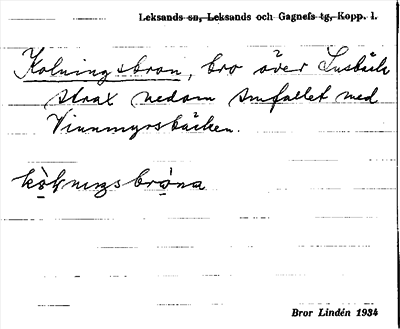 Leksands sn, Leksands och Gagnefs tg, Kopp. l.
Kolningsbron, bro över Lusbäck
strax nedom amfallet med
Vinnmyrsbäcken.
kò̤ɫnıŋsbro̤na
Bror Lindén 1934